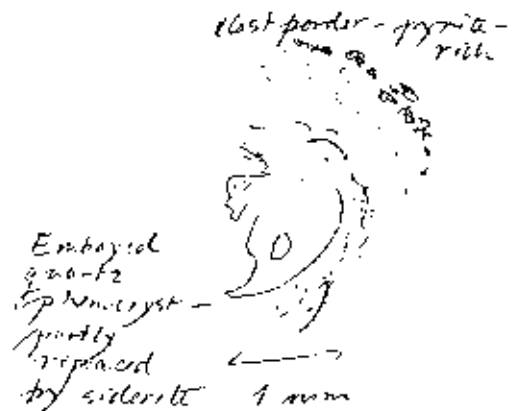 clast border - pyrite -
rich
Embayed
quartz
phenocryst -
partly
replaced
by siderite
1 mm